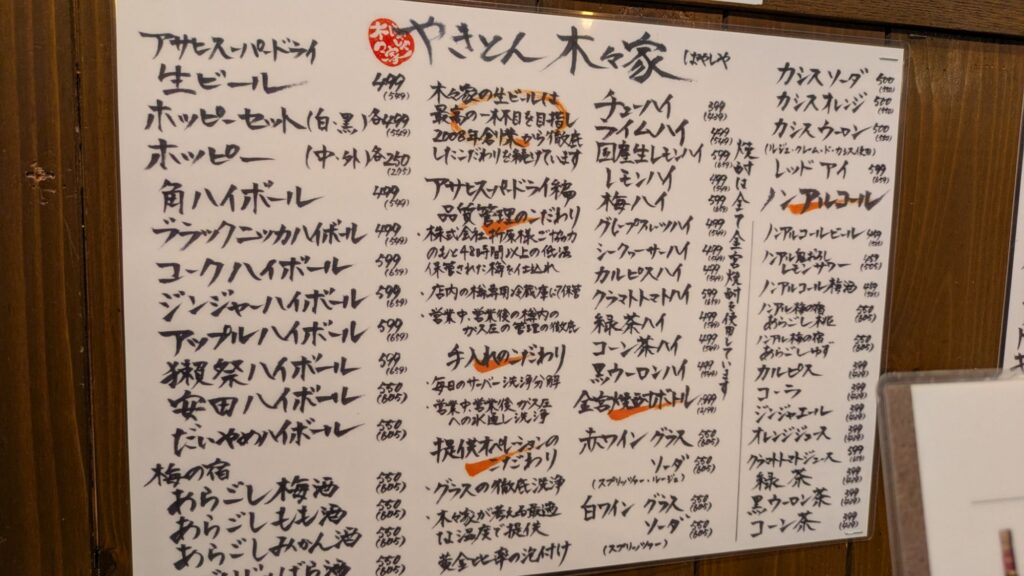 やきとん 木々家 はやしや
アサヒスーパードライ
生ビール 499 (549)
ホッピーセット(白・黒)各499 (549)
ホッピー (中・外)各250 (275)
角ハイボール 499 (549)
ブラックニッカハイボール 499 (549)
コークハイボール 599 (659)
ジンジャーハイボール 599 (659)
アップルハイボール 599 (659)
獺祭ハイボール 599 (659)
安田ハイボール 550 (605)
だいやめハイボール 550 (605)
梅の宿
あらごし梅酒 550 (605)
あらごしもも酒 550 (605)
あらごしみかん酒 550 (605)
木々家の生ビールは
最高の一杯目を目指し
2008年創業から徹底
したこだわりを続けています
アサヒスーパードライ編
品質管理のこだわり
・株式会社 様ご協力
のもと48時間以上の低温
保管された樽を仕入れ
・店内の樽専用冷蔵庫にて保管
・営業中、営業後の樽内の
ガス圧の管理の徹底
手入れのこだわり
・毎日のサーバー洗浄分解
・営業中、営業後ガス圧
への水通し洗浄
提供オペレーションの
こだわり
・グラスの徹底洗浄
・木々家が考える最適
な温度で提供
黄金比率の泡付け
チューハイ 399
ライムハイ 499 (549)
国産生レモンハイ 599 (659)
レモンハイ 499 (549)
梅ハイ
グレープフルーツハイ 499 (549)
シークヮーサーハイ 499 (549)
カルピスハイ 499 (549)
クラマトトマトハイ 599 (659)
緑茶ハイ 499 (549)
コーン茶ハイ 499 (549)
黒ウーロンハイ 499 (549)
金宮焼酎ボトル
赤ワイン グラス 550 (605)
ソーダ 550 (605)
(スプリッツァー・ルージュ)
白ワイン グラス 550 (605)
ソーダ 550 (605)
(スプリッツァー)
焼酎は全て金宮焼酎を使用しています
カシスソーダ 500 (550)
カシスオレンジ 500 (550)
カシスウーロン 500 (550)
(ルジェ・クレーム・ド・カシス使用)
レッドアイ 599 (659)
ノンアルコール
ノンアルコールビール 499
ノンアル鬼おろし
レモンサワー
ノンアルコール梅酒
ノンアル梅の宿
あらごし桃 550 (605)
ノンアル梅の宿
あらごしゆず 550 (605)
カルピス 399
コーラ 399
ジンジャエール 399
オレンジジュース 399
クラマトトマトジュース
緑茶 399
黒ウーロン茶 399
コーン茶 399